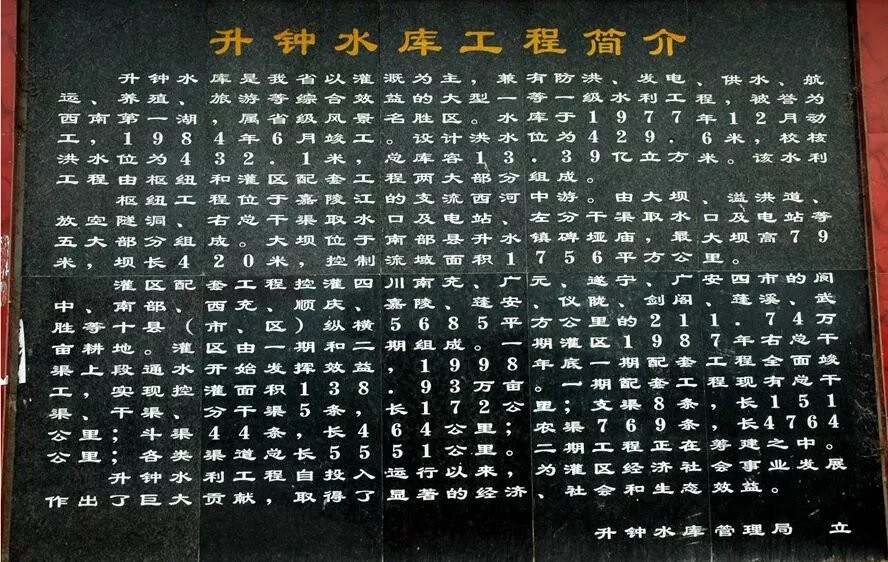 升钟水库工程简介
升钟水库是我省以灌溉为主，兼有防洪、发电、供水、航
运、养殖、旅游等综合效益的大型一等一级水利工程，被誉为
西南第一湖，属省级风景名胜区。水库于1977年12月动
工，1984年6月竣工。设计洪水位为429.6米，校核
洪水位为432.1米，总库容13.39亿立方米。该水利
工程由枢纽和灌区配套工程两大部分组成。
枢纽工程位于嘉陵江的支流西河中游。由大坝、溢洪道、
放空隧洞、右总干渠取水口及电站、左分干渠取水口及电站等
五大部分组成。大坝位于南部县升水镇碑垭庙，最大坝高79
米，坝长420米，控制流域面积1756平方公里。
灌区配套工程控灌四川南充、广元、遂宁、广安四市的阆
中、南部、西充、顺庆、嘉陵、蓬安、仪陇、剑阁、蓬溪、武
胜等十县（市、区）纵横5685平方公里的211.74万
亩耕地。灌区由一期和二期组成。一期灌区1987年右总干
渠上段通水开始发挥效益，1998年底一期配套工程全面竣
工，实现控灌面积138.93万亩。一期配套工程现有总干
渠、干渠、分干渠5条，长172公里；支渠8条，长151
公里；斗渠44条，长464公里；农渠769条，长4764
公里；各类渠道总长5551公里。二期工程正在筹建之中。
升钟水利工程自投入运行以来，为灌区经济社会事业发展
作出了巨大贡献，取得了显著的经济、社会和生态效益。
升钟水库管理局 立